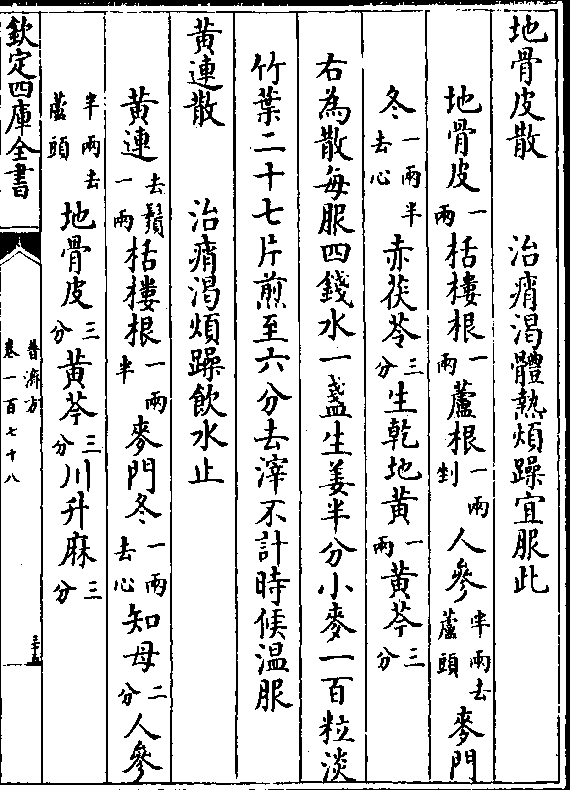 地骨皮散　治痟渴體熱煩躁宜服此
地骨皮一兩栝樓根一兩蘆根一兩剉人參半兩去蘆頭麥門
冬一兩半去心赤茯苓三分生乾地黃一兩黃芩三分
右為散每服四錢水一盞生姜半分小麥一百粒淡
竹葉二十七片煎至六分去滓不計時候温服
黃連散　治痟渴煩躁飲水止
黃連去鬚一兩栝樓根一兩半麥門冬一兩去心知母二分人參
半兩去蘆頭地骨皮三分黃芩三分川升麻三分
欽定四庫全書
普濟方
卷一百七十八